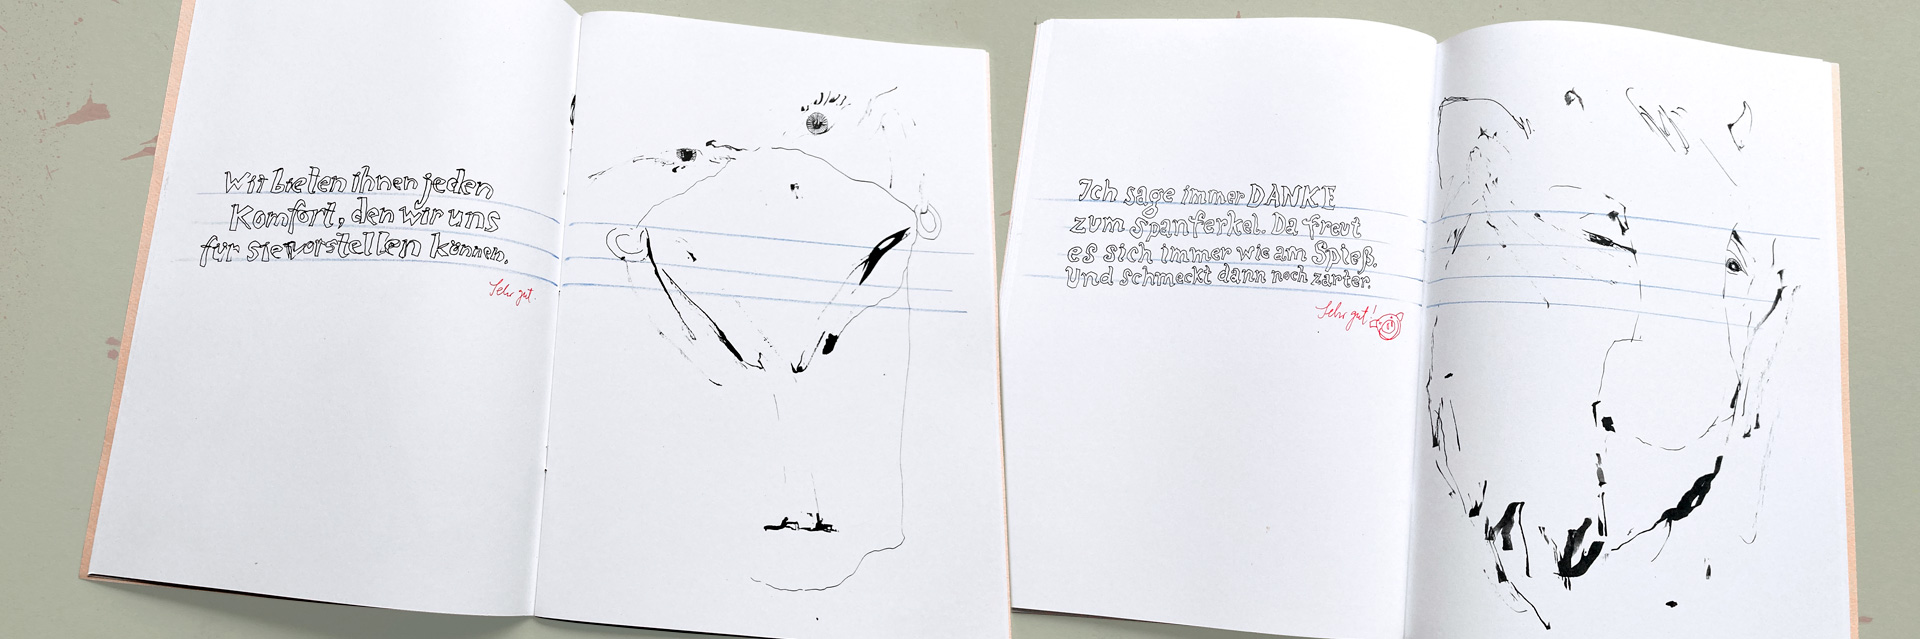 Wir bieten ihnen jeden
Komfort, den wir uns
für sie vorstellen können.
Sehr gut.
Ich sage immer DANKE
zum Spanferkel. Da freut
es sich immer wie am Spieß.
Und schmeckt dann noch zarter.
Sehr gut!